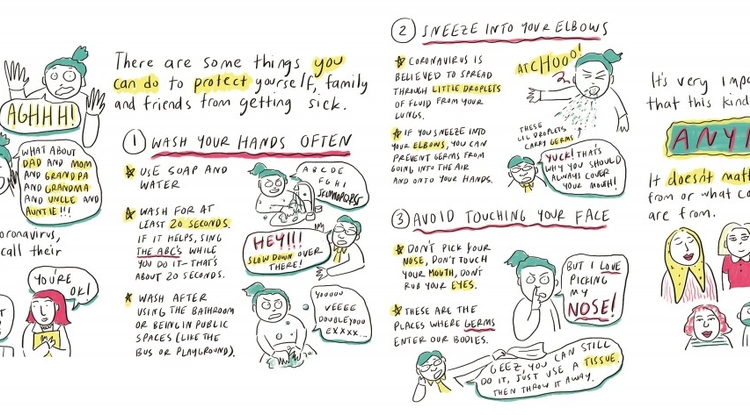 AGHHH!
WHAT ABOUT
DAD AND MOM
AND GRANDPA
AND GRANDMA
AND UNCLE AND
AUNTIE!!!
coronavirus,
call their
YOU'RE
OK!
There are some things you
can do to protect yourself, family
and friends from getting sick.
1 WASH YOUR HANDS OFTEN
USE SOAP AND
WATER
WASH FOR AT
LEAST 20 SECONDS.
IF IT HELPS, SING
THE ABC's WHILE
YOU DO IT-THAT'S
ABOUT 20 SECONDS.
WASH AFTER
USING THE BATHROOM
OR BEING IN PUBLIC
SPACES (LIKE THE
BUS OR PLAYGROUND).
A B C D E
F G H I
JKLMNOPQRS
HEY!!!
SLOW DOWN OVER
THERE!
YOUUUU
VEEEE
DOUBLEYOUU
EXXXX...
2 SNEEZE INTO YOUR ELBOWS
CORONAVIRUS IS
BELIEVED TO SPREAD
THROUGH LITTLE DROPLETS
OF FLUID FROM YOUR
LUNGS.
IF YOU SNEEZE INTO
YOUR ELBOWS, YOU CAN
PREVENT GERMS FROM
GOING INTO THE AIR
AND ONTO YOUR HANDS.
ATCHOOO!
THESE
LIL DROPLETS
CARRY GERMS
YUCK! THAT'S
WHY YOU SHOULD
ALWAYS COVER
YOUR MOUTH!
3 AVOID TOUCHING YOUR FACE
DON'T PICK YOUR
NOSE, DON'T TOUCH
YOUR MOUTH, DON'T
RUB YOUR EYES.
THESE ARE THE
PLACES WHERE GERMS
ENTER OUR BODIES.
BUT I LOVE
PICKING
MY
NOSE!
GEEZ, YOU CAN STILL
DO IT, JUST USE A TISSUE.
THEN THROW IT AWAY.
It's very impo
that this kind
ANY
It doesn't matt
from or what co
are from.